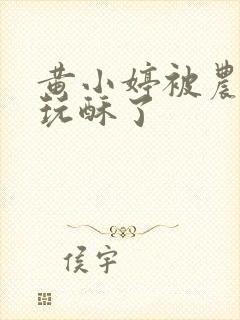 黄小婷被農
玩酥了
侯宇